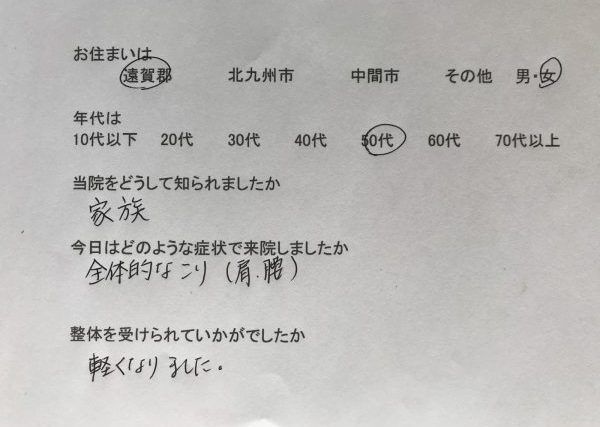 お住まいは
遠賀郡 北九州市 中間市 その他 男・女
年代は
10代以下 20代 30代 40代 50代 60代 70代以上
当院をどうして知られましたか
家族
今日はどのような症状で来院しましたか
全体的なこり（肩．腰）
整体を受けられていかがでしたか
軽くなりました。